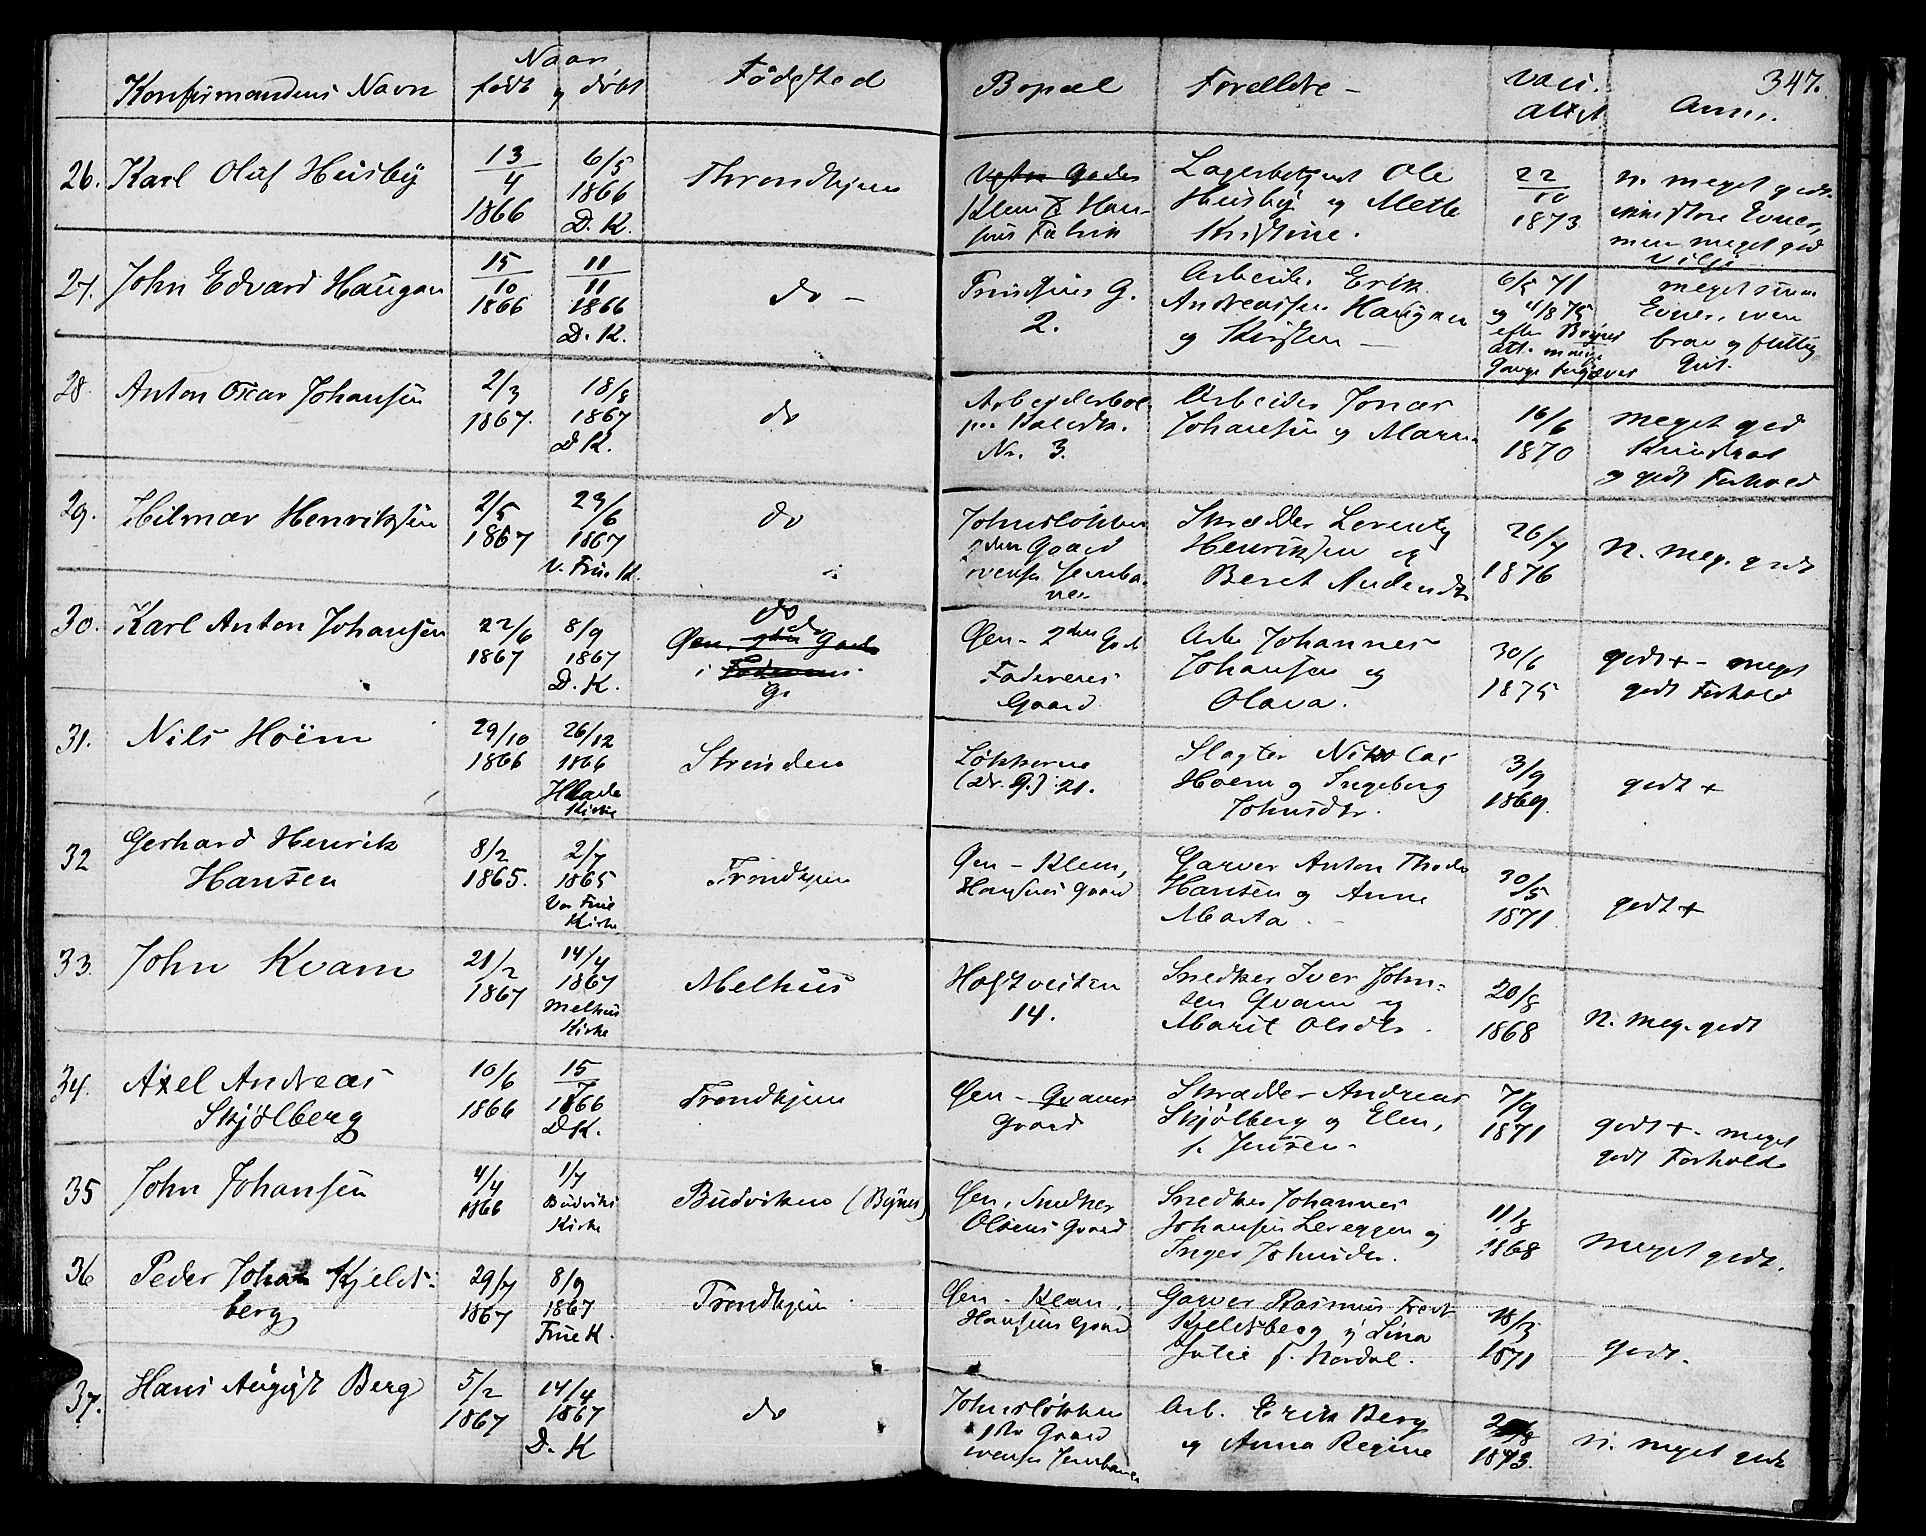 347.
Konfirmandens Navn
Naar
født og døbt
Fødested
Bopæl
Forældre -
vacc.
attest
Anm.
26. Karl Oluf Husby
13/4 1866
6/5 1866 D. K.
Throndhjem
Klem & Hansens Fabrik
Lagerbetjent Ole
Husby og Mette
Kristine.
22/10 1873
n. meget godt.
mindre Evner,
men meget god
Vilje
27. John Edvard Haugan
15/10 1866
11/11 1866 D. K.
do -
G.
2.
Arbeider Erik
Andreassen Haugan
og Kirsten -
6/5 71
og 4/8 75
efter
att. mange
Gange forgjæves
meget smaa
Evner, men
brav og flittig
Gut.
28. Anton Oscar Johansen
2/3 1867.
18/8 1867 D K.
do
Arbeiderbol.
Nr. 3.
Arbeider Jonas
Johansen og Maren
16/6 1870
meget god
Kundskab
og godt Forhold
29. Hilmar Henriksen
2/5 1867
23/6 1867 V. Frue K.
do
Johnsløkken
2den Gaard
ovenfor Jernba-
nen
Skrædder Lorents
Henriksen og
Beret Andersdt.
26/7 1876
n. meg. godt
30. Karl Anton Johansen
22/6 1867
8/9 1867 D. K.
do
Øen - 2den Grd
Foderenes
Gaard
Arb. Johannes
Johansen og
Olava.
30/6 1875
godt + - meget
godt Forhold
31. Nils Hoëm
29/10 1866
26/12 1866 Hlade Kirke
Strinden
Løkkerne
(Dr. G.) 21.
Slagter Nikolai
Hoem og Ingeborg
Johnsdtr.
3/9 1869.
godt +
32 Gerhard Henrik
Hansen
8/2 1865.
2/7 1865 Vor Frue Kirke
Trondhjem
Øen - Klem,
Hansens Gaard
Garver Anton Theodor
Hansen og Anne
Marta -
30/5 1871.
godt +
33. John Kvam
21/2 1867
14/4 1867 Melhus Kirke
Melhus
Hospitalsveiten
14.
Snedker Iver John-
sen Qvam og
Marit Olsdtr.
20/8 1868
n. meg. godt
34. Axel Andreas
Skjølberg
10/6 1866
15/7 1866 D K.
Trondhjem
Øen - Qvams
Gaard
Skrædder Andreas
Skjølberg og Elen,
f. Jensen -
7/9 1871
godt + - meget
godt Forhold
35 John Johansen
4/4 1866
1/7 Budvikens Kirke
Budviken (Bynes)
Øen, Snedker
Olsens Gaard
Snedker Johannes
Johansen Lereggen og
Inger Johnsdtr.
11/8 1868
meget godt.
36 Peder Johan Kjelds-
berg
29/7 1867
8/9 1867 Frue K.
Trondhjem
Øen - Klem,
Hansens Gaard
Garver Rasmus Fredr
Kjeldsberg og Lina
Julie f. Nordal.
18/5 1871
Godt.
37. Hans August Berg
5/2 1867
14/4 1867 D. K
do
Johnsløkken
1ste Gaard
ovenfor Jernbanen
Arb. Erik Berg
og Anna Regine
1873.
n. meget godt